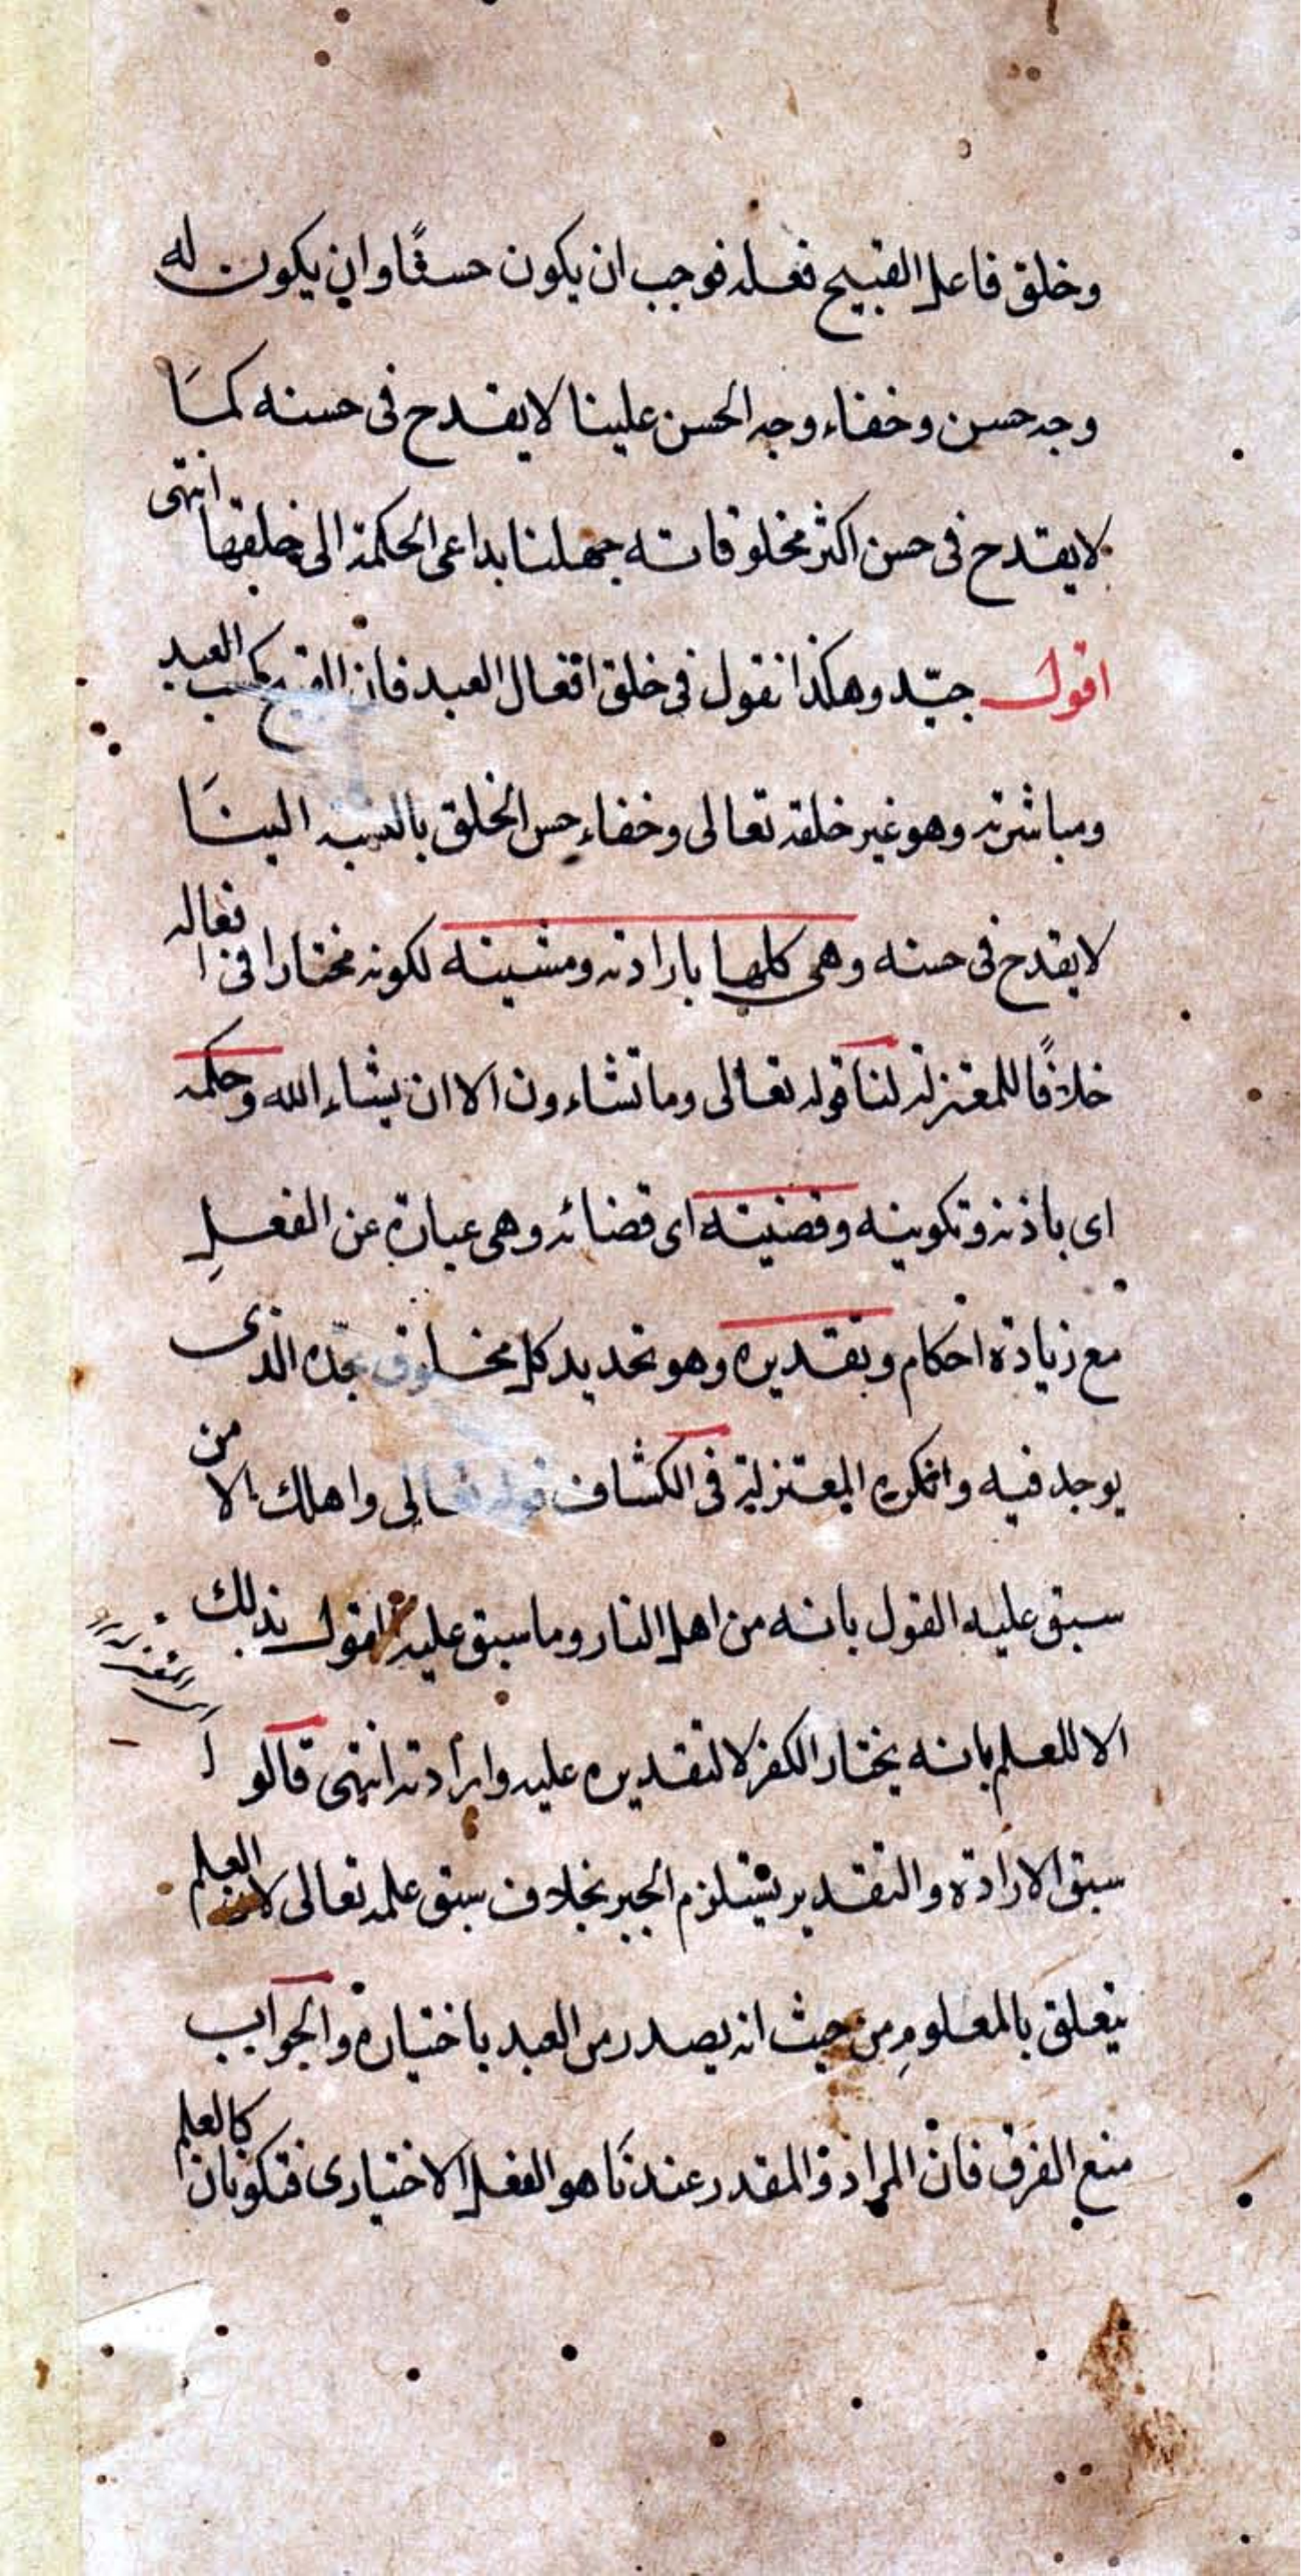 وخلق فاعل القبيح فعله فوجب ان يكون حسنًا وان يكون له
وجه حسن وخفاء وجه الحسن علينا لا يقدح فى حسنه كما
لا يقدح فى حسن اكثر مخلوقاته جهلنا بداعى الحكمة الى خلقها انتهى
اقول جيّد وهكذا نقول فى خلق افعال العبد فان القبيح كسب العبد
ومباشرته وهو غير خلقه تعالى وخفاء حسن الخلق بالنسبه الينا
لا يقدح فى حسنه وهى كلها بارادته ومشيته لكونه مختارا فى افعاله
خلافًا للمعتزله لنا قوله تعالى وما تشاءون الا ان يشاء الله وحكمه
اى باذنه وتكوينه وقضيته اى قضائه وهى عبارة عن الفعل
مع زيادة احكام وتقديره وهو تحديد كل مخلوق بحدّه الذى
يوجد فيه وانكره المعتزلة فى الكشاف قوله تعالى واهلك الا من
سبق عليه القول بانه من اهل النار وما سبق عليه القول بذلك
الا للعلم بانه يختار الكفر لا لتقديره عليه وارادته انتهى قالوا
اى المعتزله
سبق الارادة والتقدير يستلزم الجبر بخلاف سبق علمه تعالى لان العلم
يتعلق بالمعلوم من حيث انه يصدر من العبد باختياره والجواب
منع الفرق فان المراد والمقدر عندنا هو الفعل الاختيارى فتكونان كالعلم